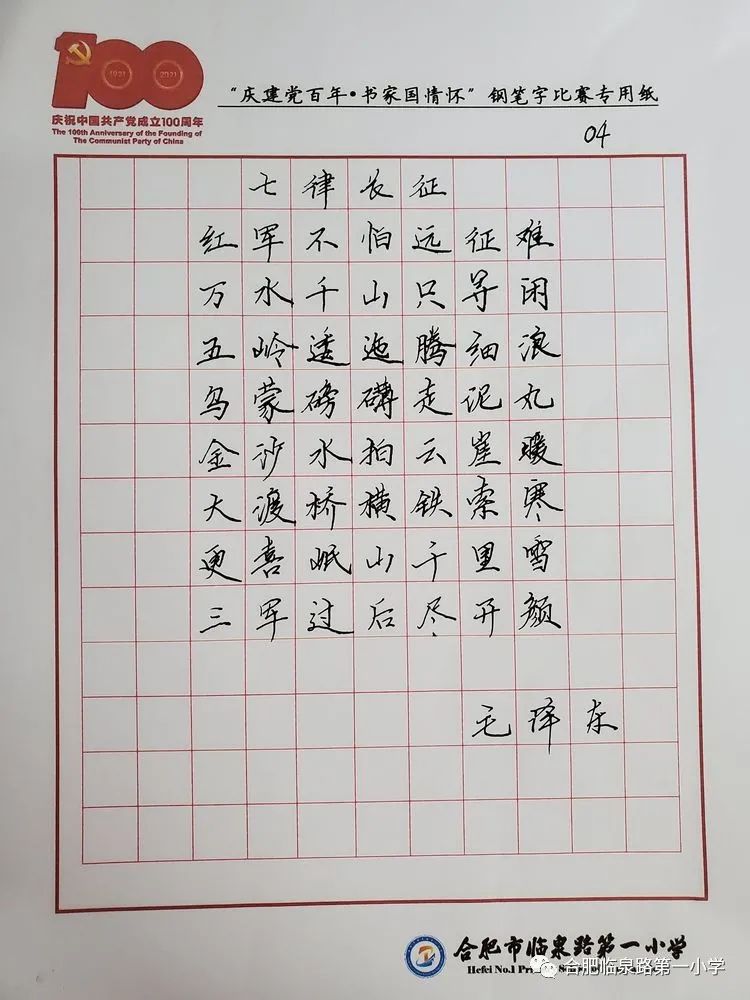 100
1921 2021
庆祝中国共产党成立100周年
The 100th Anniversary of the Founding of
The Communist Party of China
“庆建党百年•书家国情怀”钢笔字比赛专用纸
04
七律长征
红军不怕远征难
万水千山只等闲
五岭逶迤腾细浪
乌蒙磅礴走泥丸
金沙水拍云崖暖
大渡桥横铁索寒
更喜岷山千里雪
三军过后尽开颜
毛泽东
合肥市临泉路第一小学
Hefei No.1
合肥临泉路第一小学